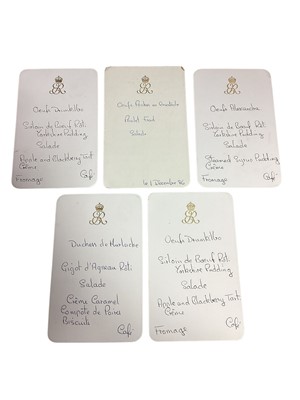 Oeufs Drumkilbo
Sirloin de Boeuf Roti
Yorkshire Pudding
Salade
Apple and Blackberry Tart
Crème
Fromage
Café
Oeufs
Poulet Froid
Salade
Décembre
Oeufs Alexandra
Sirloin de Boeuf Roti
Yorkshire Pudding
Salade
Steamed Syrup Pudding
Crème
Fromage
Café
Duchess de Merluche
Gigot d'Agneau Roti
Salade
Crème Caramel
Compote de Poires
Biscuits
Café
Oeufs Drumkilbo
Sirloin de Boeuf Roti
Yorkshire Pudding
Salade
Apple and Blackberry Tart
Crème
Fromage
Café